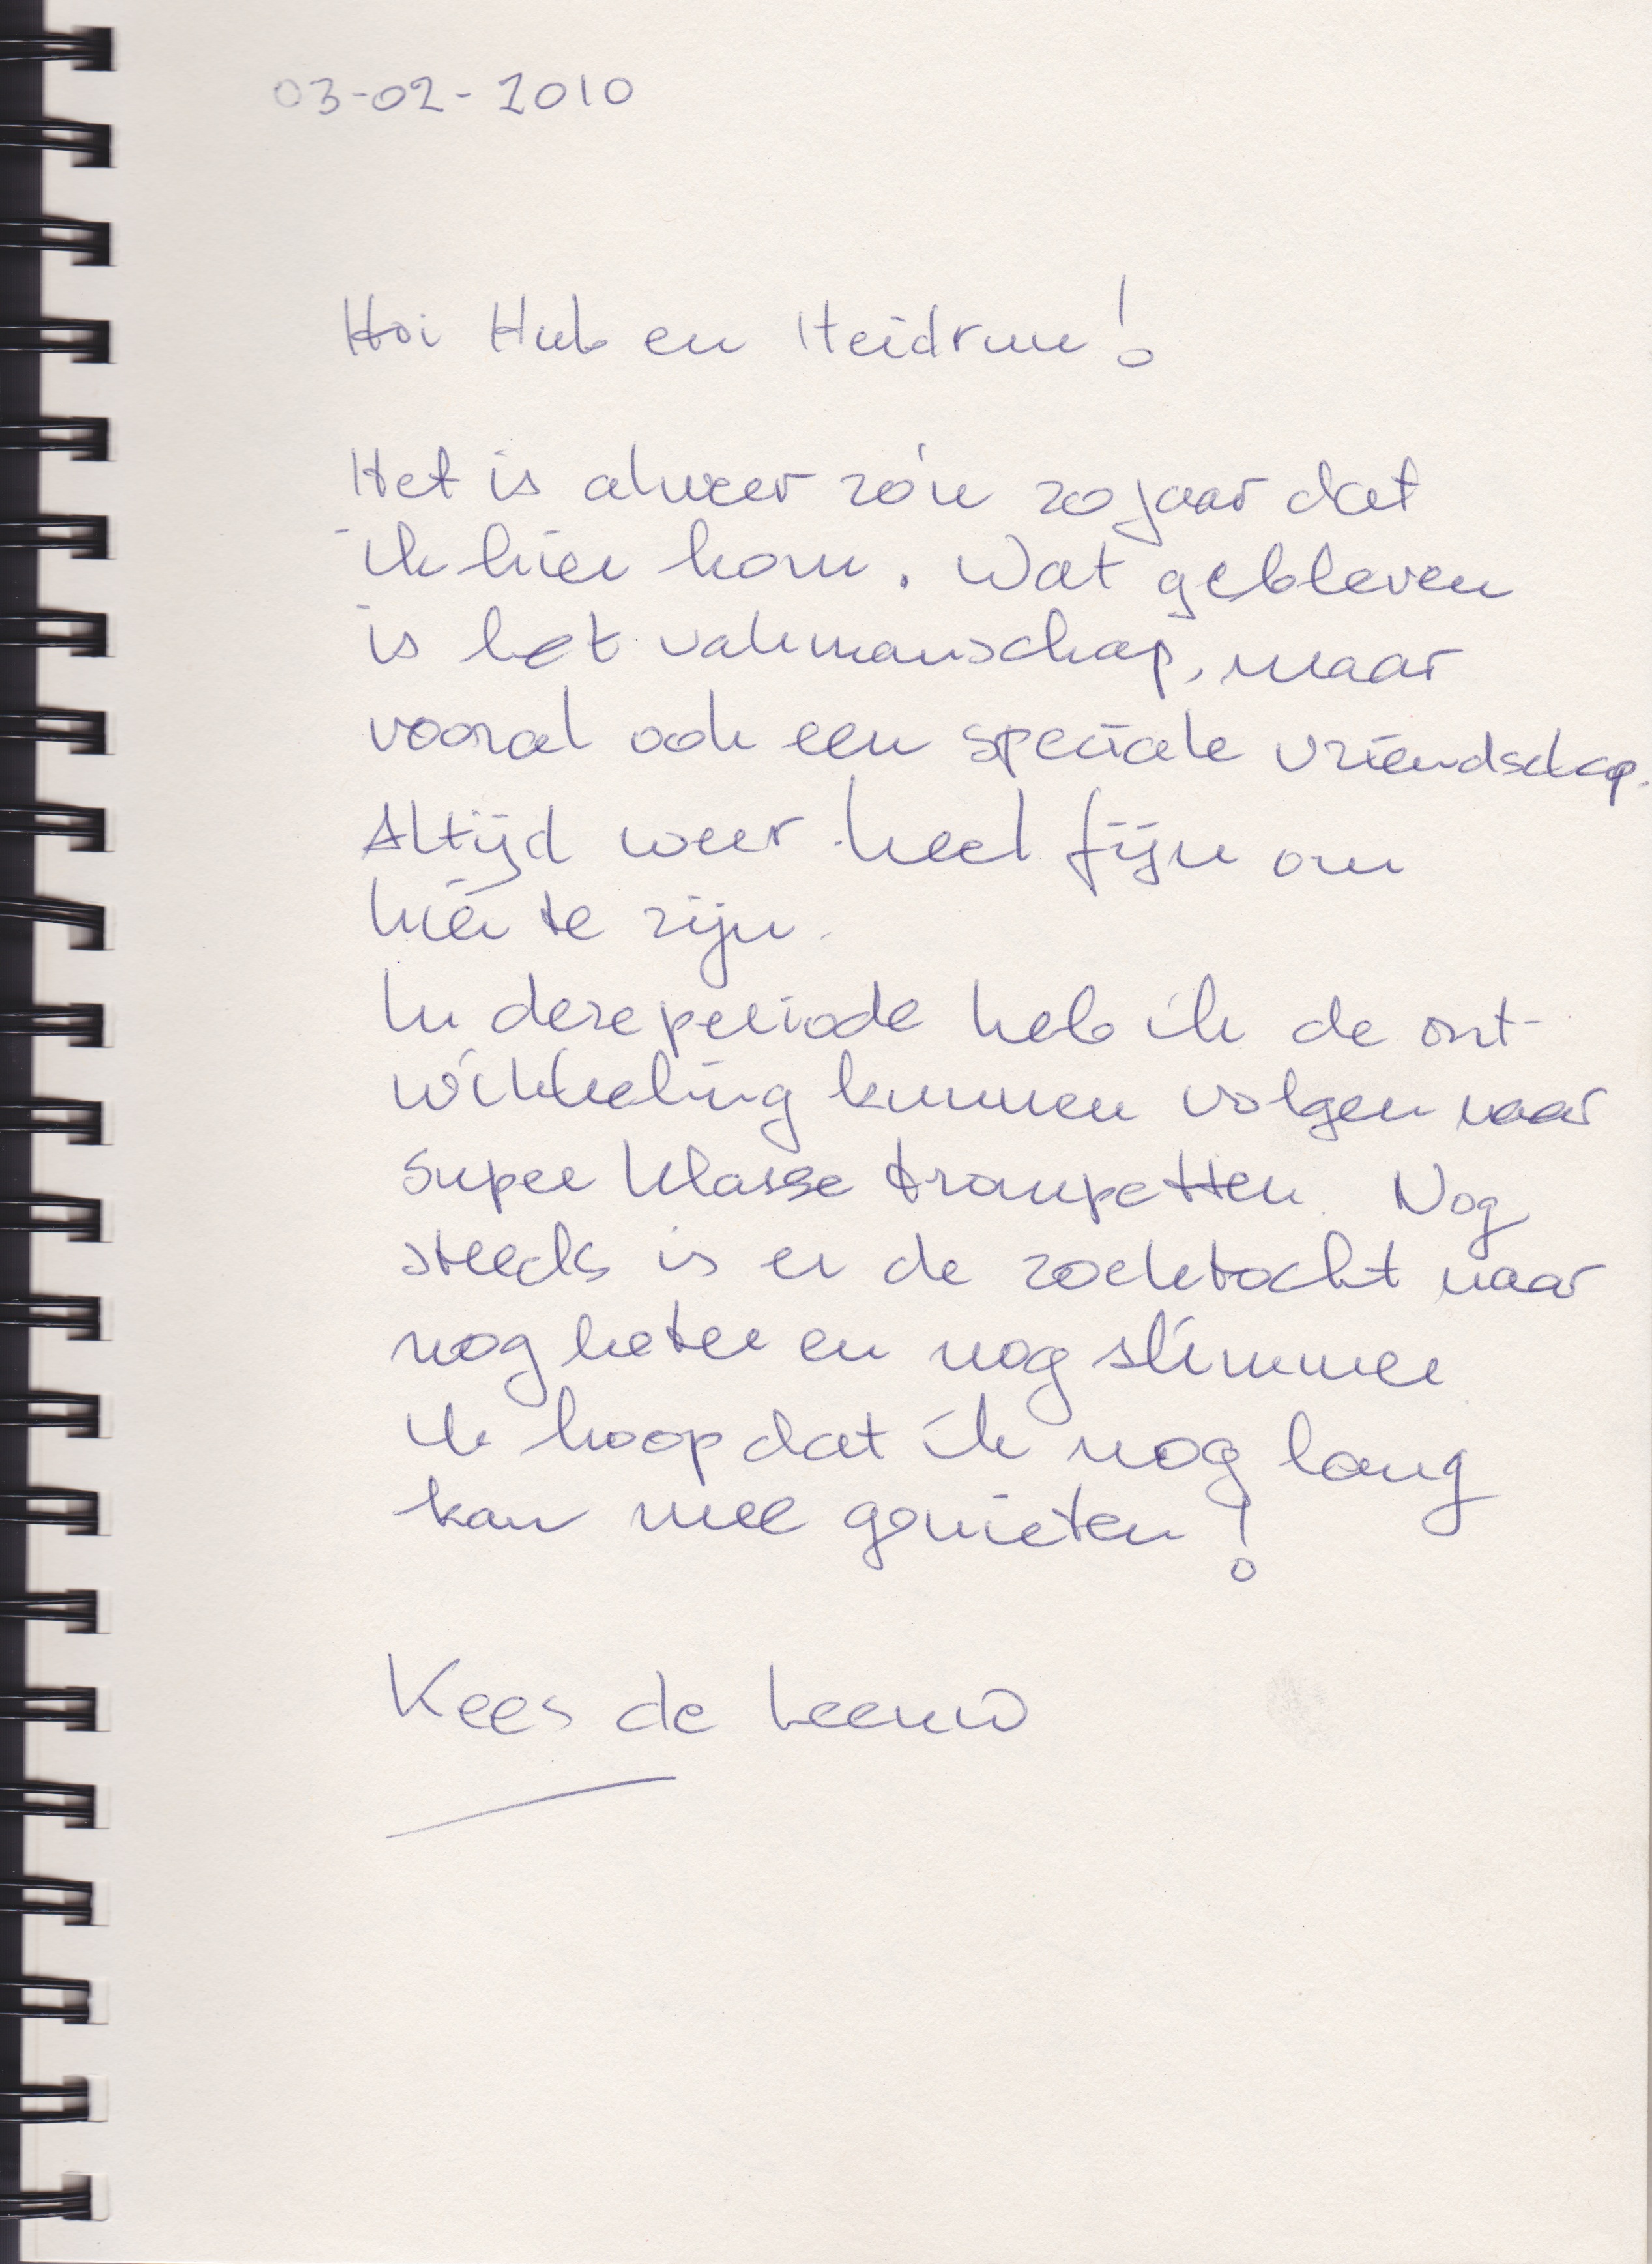 03-02-2010
Hoi Hub en Heidrun!
Het is alweer zo'n 20 jaar dat
ik hier kom. Wat gebleven
is het vakmanschap, maar
vooral ook een speciale vriendschap.
Altijd weer heel fijn om
hier te zijn.
In deze periode heb ik de ont-
wikkeling kunnen volgen naar
super klasse trompetten. Nog
steeds is er de zoektocht naar
nog beter en nog slimmer
Ik hoop dat ik nog lang
kan mee genieten!
Kees de Leeuw